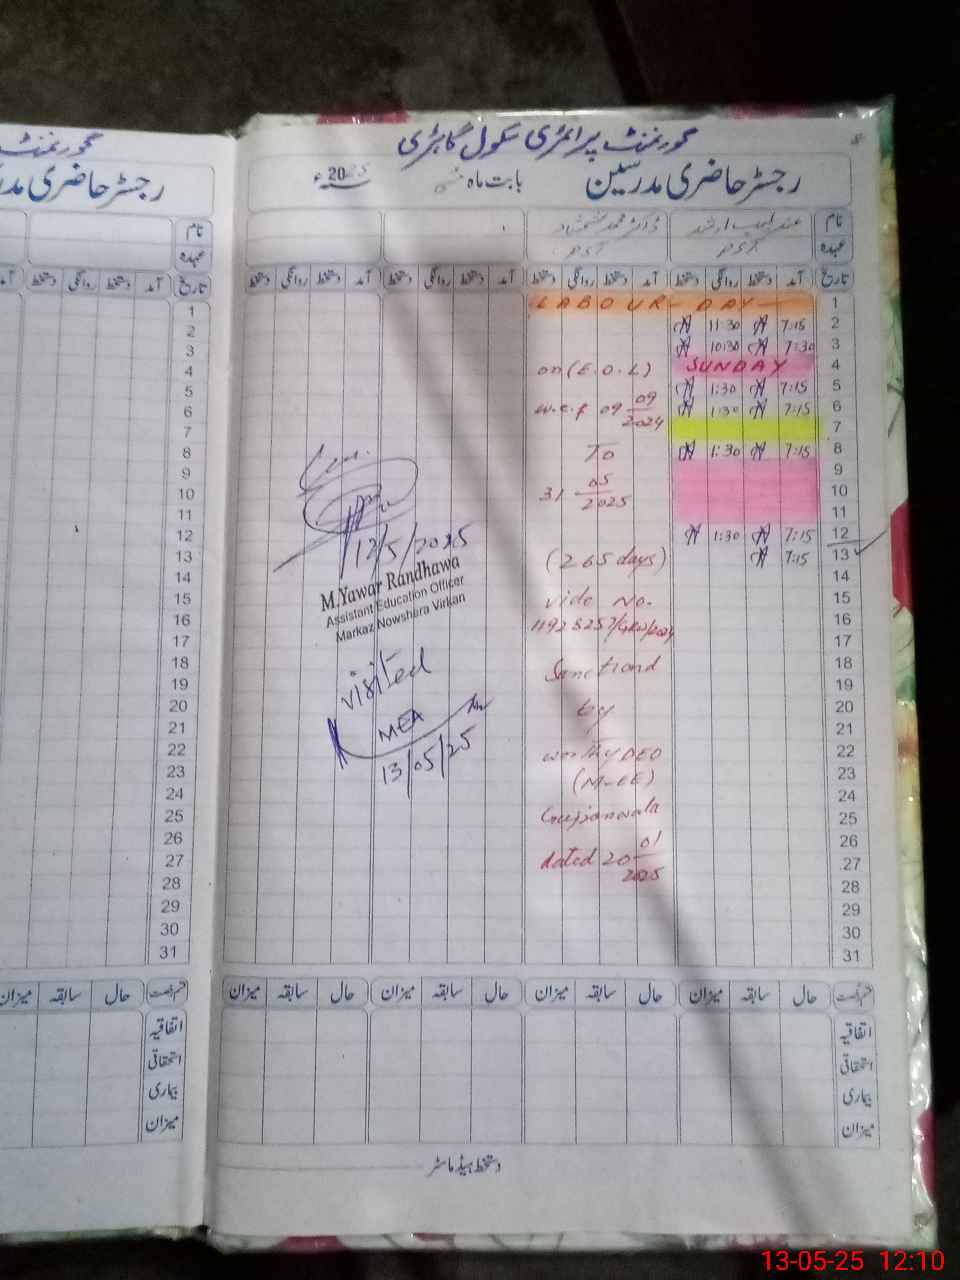 گورنمنٹ پرائمری سکول گاہڑی
رجسٹر حاضری مدرسین بابت ماہ 2025ء
نام
عندلیب ارشد
ڈاکٹر محمد شمشاد
عہدہ
PST
PST
تاریخ آمد دستخط روانگی دستخط آمد دستخط روانگی دستخط آمد دستخط روانگی دستخط آمد دستخط روانگی دستخط
1 LABOUR DAY
2 7:15 11:30
3 7:30 10:30
4 SUNDAY
5 7:15 1:30
6 7:15 1:30
7
8 7:15 1:30
9
10
11
12 7:15 1:30
13 7:15
14
15
16
17
18
19
20
21
22
23
24
25
26
27
28
29
30
31
on (E.O.L)
w.e.f 09 09/2024
To
31 05/2025
(265 days)
vide No.
Sanctiond
by
worthy DEO
(M-EE)
Gujranwala
dated 20 01/2025
12/5/2025
M.Yawar Randhawa
Assistant Education Officer
Markaz Nowshera Virkan
visited
MEA
13/05/25
حال سابقہ میزان حال سابقہ میزان حال سابقہ میزان حال سابقہ میزان
اتفاقیہ
استحقاقی
بیماری
میزان
دستخط ہیڈ ماسٹر
گورنمنٹ
رجسٹر حاضری
نام
عہدہ
تاریخ آمد دستخط روانگی دستخط
1
2
3
4
5
6
7
8
9
10
11
12
13
14
15
16
17
18
19
20
21
22
23
24
25
26
27
28
29
30
31
حال سابقہ میزان
اتفاقیہ
استحقاقی
بیماری
میزان
13-05-25 12:10